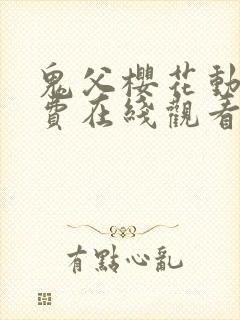 鬼父櫻花動
費在綫觀看
有點心亂